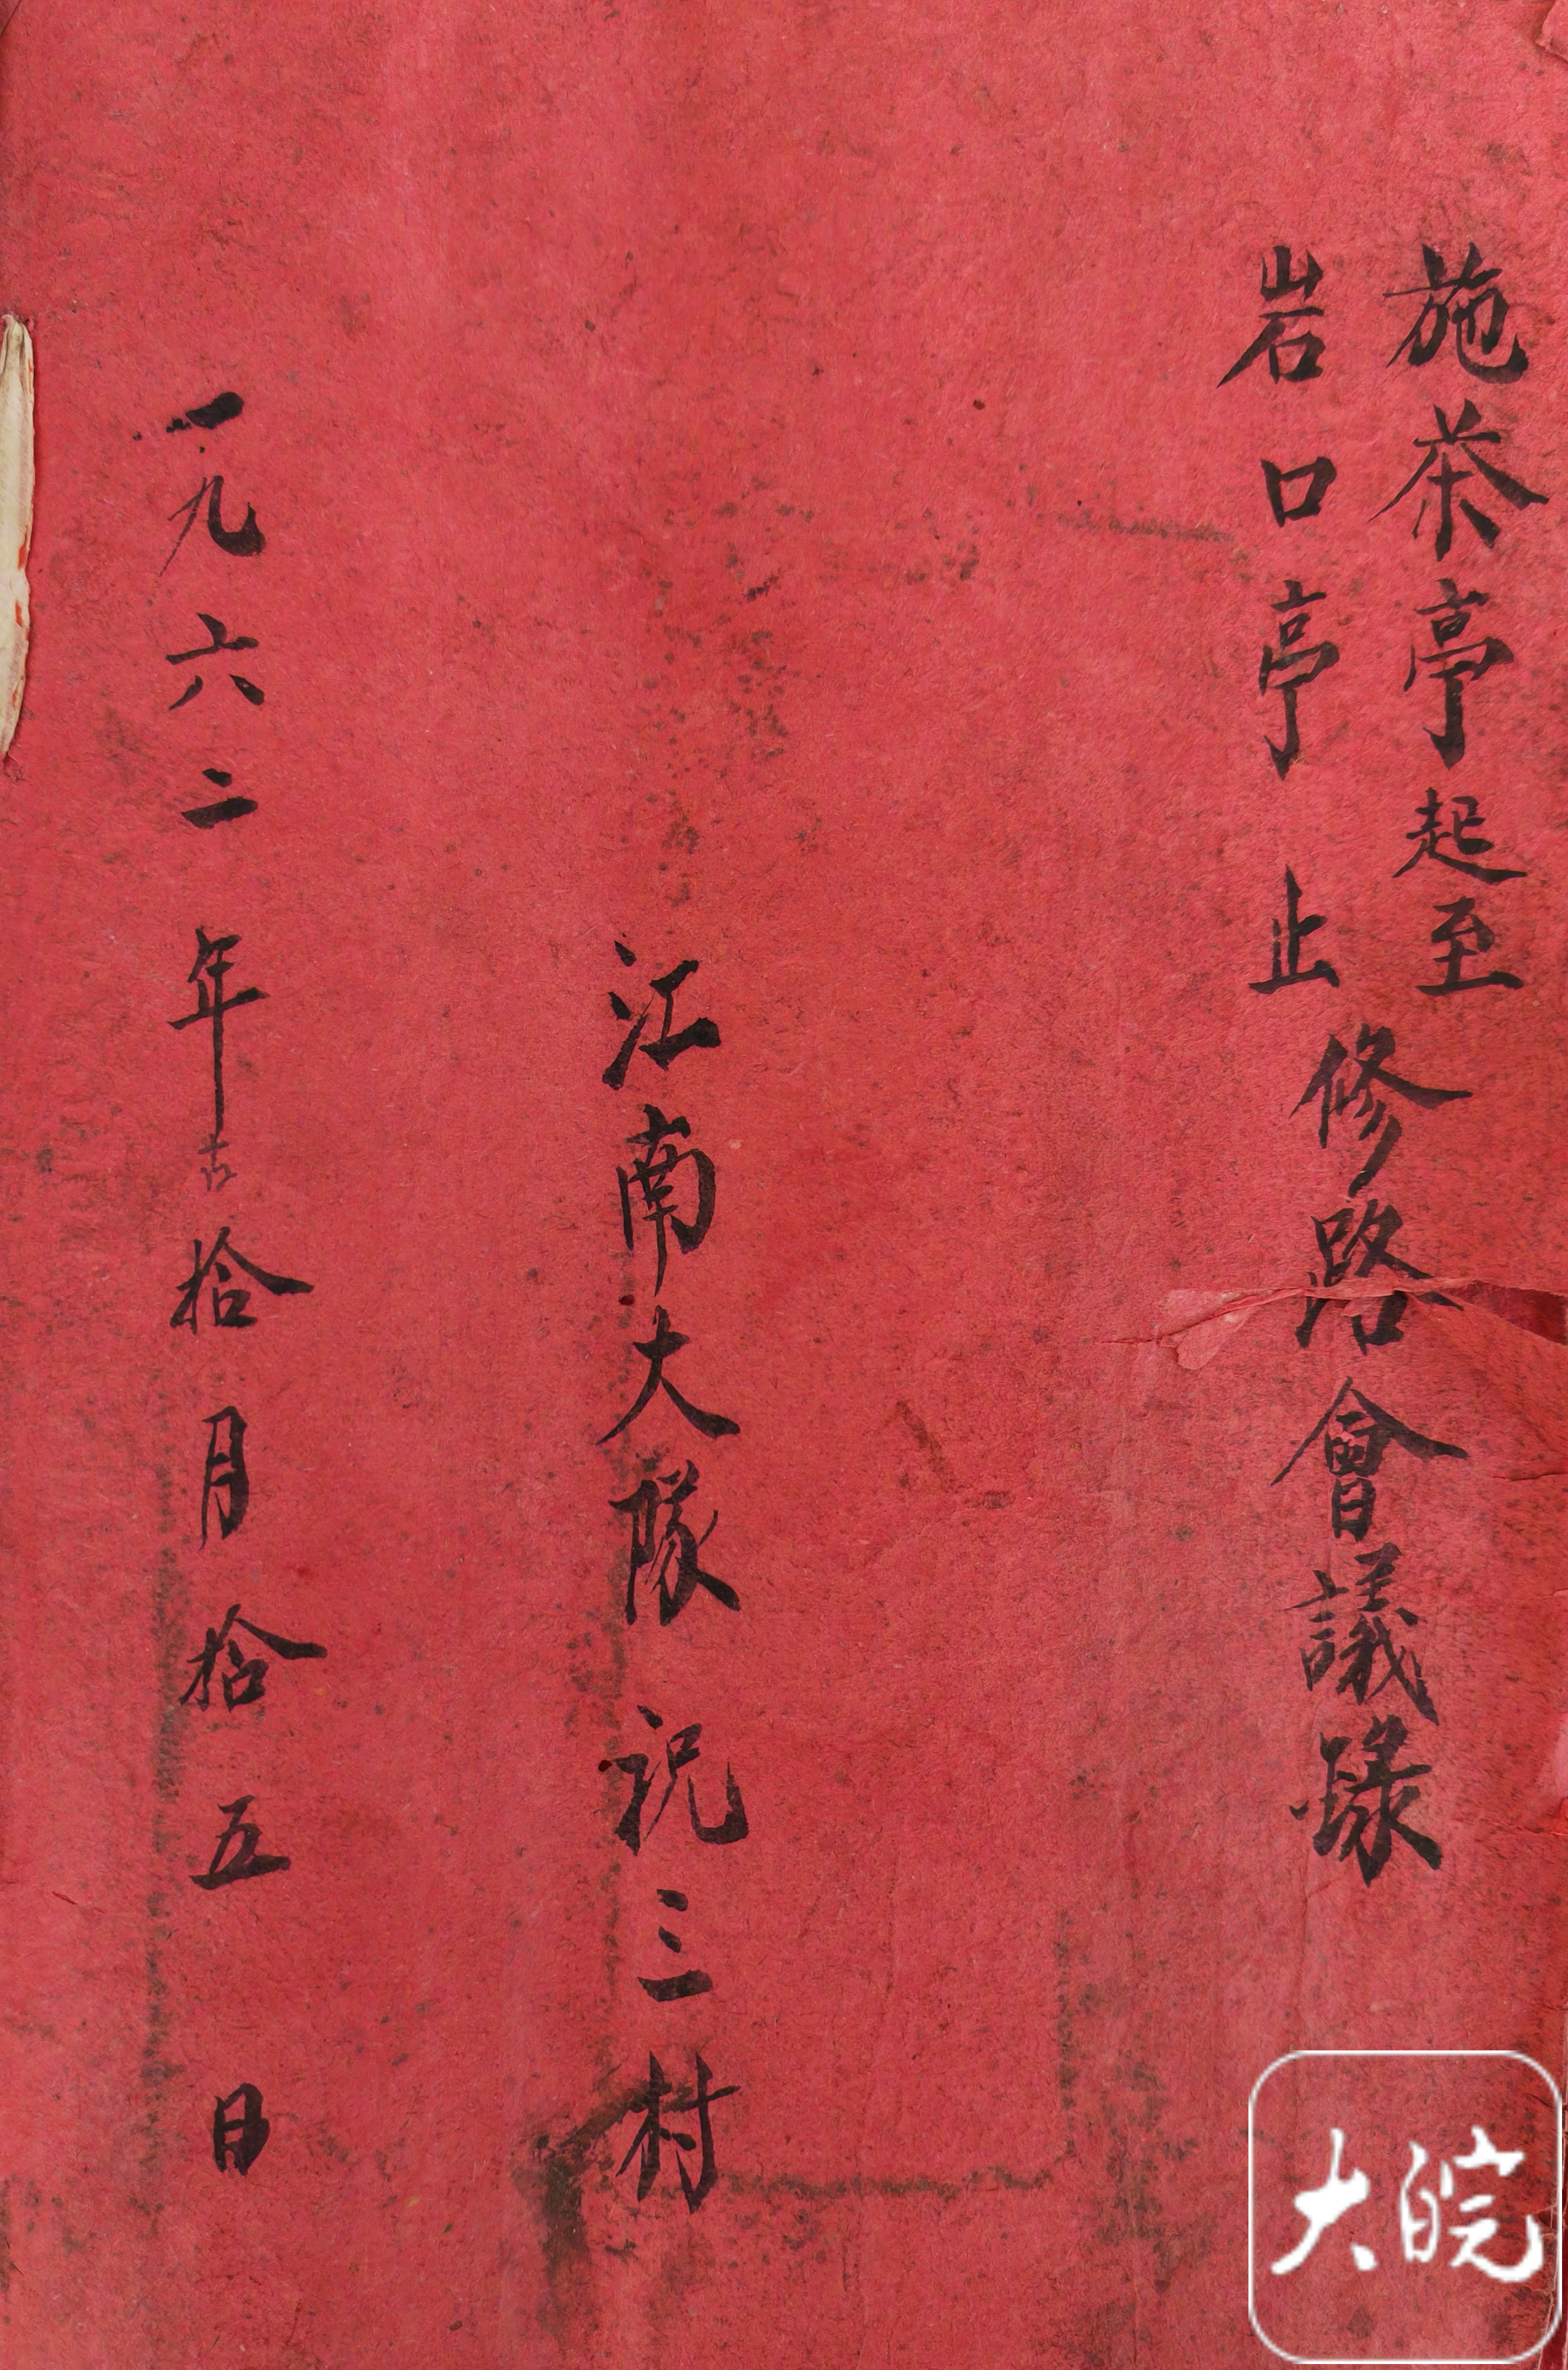 施茶亭起至
岩口亭止
修路會議録
江南大隊祝三村
一九六二年古拾月拾五日
大皖